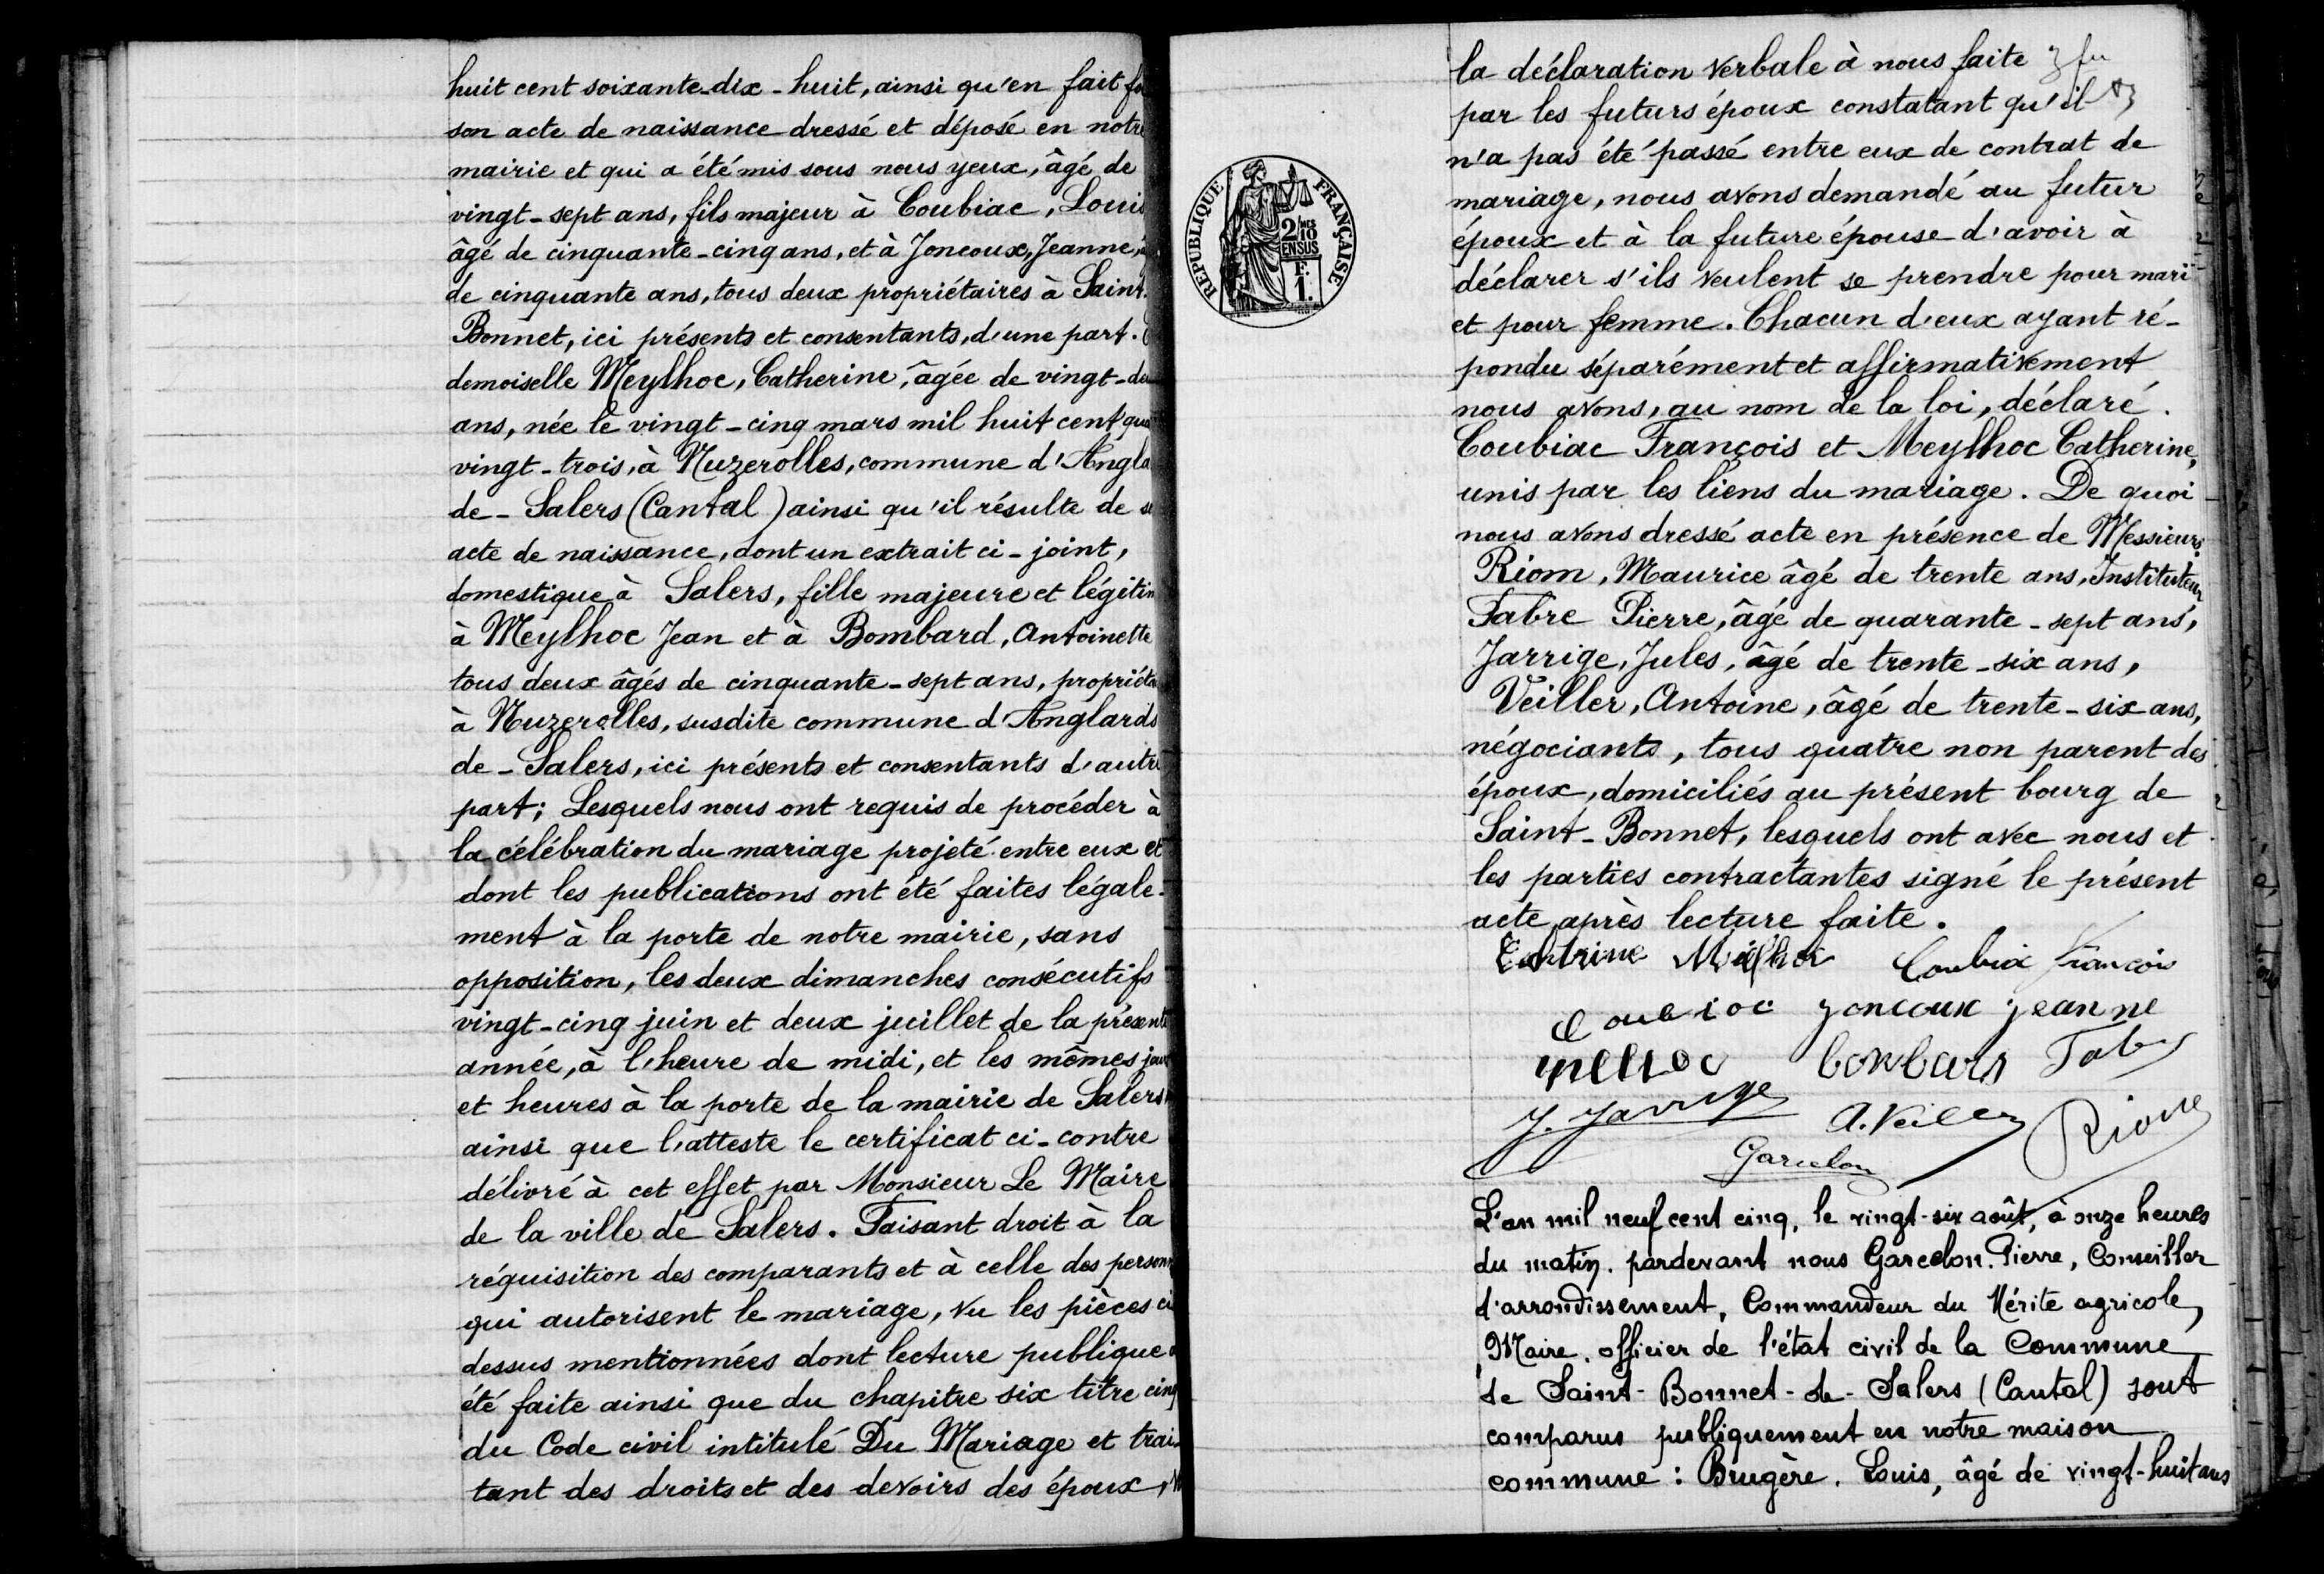 huit cent soixante-dix-huit, ainsi qu'en fait
son acte de naissance dressé et déposé en notre
mairie et qui a été mis sous nous yeux, âgé de
vingt-sept ans, fils majeur à Coubiac, Louis
âgé de cinquante-cinq ans, et à Joncoux, Jeanne,
de cinquante ans, tous deux propriétaires à Saint-
Bonnet, ici présents et consentants, d'une part.
demoiselle Meylhoc, Catherine, âgée de vingt-de
ans, née le vingt-cinq mars mil huit cent qua
vingt-trois, à Nuzerolles, commune d'Angla
de-Salers (Cantal) ainsi qu'il résulte de s
acte de naissance, dont un extrait ci-joint,
domestique à Salers, fille majeure et légitim
à Meylhoc Jean et à Bombard, Antoinette
tous deux âgés de cinquante-sept ans, propriéta
à Nuzerolles, susdite commune d'Anglards
de-Salers, ici présents et consentants d'autre
part; Lesquels nous ont requis de procéder à
la célébration du mariage projeté entre eux et
dont les publications ont été faites légale-
ment à la porte de notre mairie, sans
opposition, les deux dimanches consécutifs
vingt-cinq juin et deux juillet de la présente
année, à l'heure de midi, et les mêmes jour
et heures à la porte de la mairie de Salers
ainsi que l'atteste le certificat ci-contre
délivré à cet effet par Monsieur Le Maire
de la ville de Salers. Faisant droit à la
réquisition des comparants et à celle des personn
qui autorisent le mariage, vu les pièces ci
dessus mentionnées dont lecture publique a
été faite ainsi que du chapitre six titre cinq
du Code civil intitulé Du Mariage et trai-
tant des droits et des devoirs des époux,
RÉPUBLIQUE FRANÇAISE
2/10 MES
EN SUS
F.
1.
la déclaration verbale à nous faite
par les futurs époux constatant qu'il
n'a pas été passé entre eux de contrat de
mariage, nous avons demandé au futur
époux et à la future épouse d'avoir à
déclarer s'ils veulent se prendre pour mari
et pour femme. Chacun d'eux ayant ré-
pondu séparément et affirmativement
nous avons, au nom de la loi, déclaré.
Coubiac François et Meylhoc Catherine,
unis par les liens du mariage. De quoi
nous avons dressé acte en présence de Messieurs
Riom, Maurice âgé de trente ans, Instituteur
Fabre Pierre, âgé de quarante-sept ans,
Jarrige, Jules, âgé de trente-six ans,
Veiller, Antoine, âgé de trente-six ans,
négociants, tous quatre non parent des
époux, domiciliés au présent bourg de
Saint-Bonnet, lesquels ont avec nous et
les parties contractantes signé le présent
acte après lecture faite.
Coubiac françois
Coubioc joncoux jeanne
J. Jarrige A. Veiller Riom
Garcelon
L'an mil neuf cent cinq, le vingt-six août, à onze heures
du matin. pardevant nous Garcelon. Pierre, Conseiller
d'arrondissement, Commandeur du Mérite agricole,
Maire, officier de l'état civil de la Commune
de Saint-Bonnet-de-Salers (Cantal) sont
comparus publiquement en notre maison
commune : Brugère. Louis, âgé de vingt-huit ans